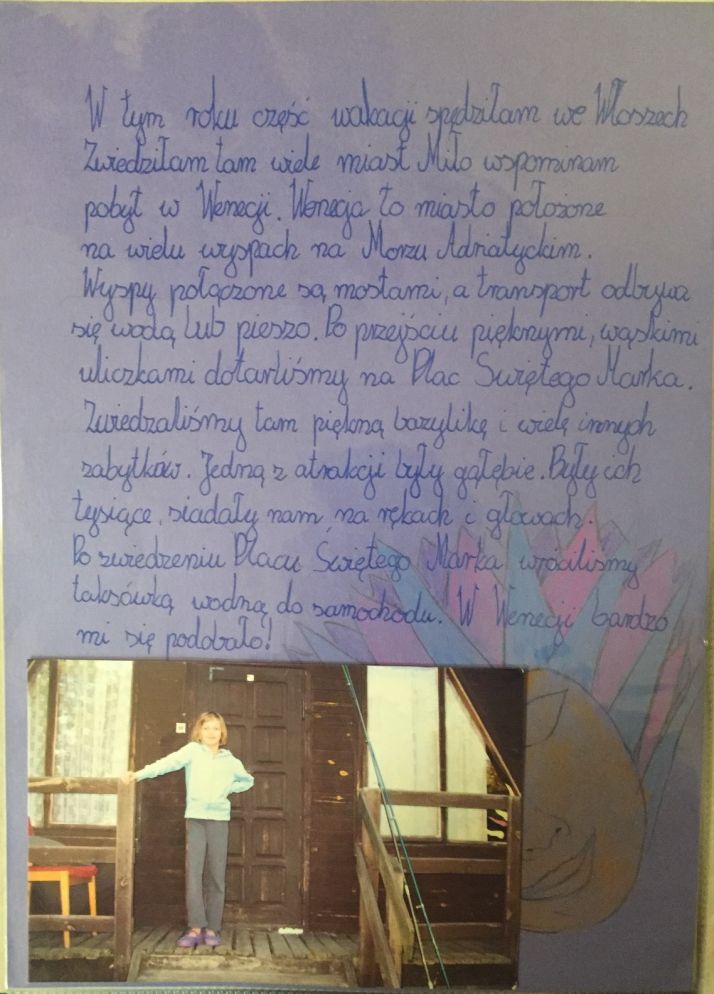 W tym roku część wakacji spędziłam we Włoszech
Zwiedziłam tam wiele miast Miło wspominam
pobyt w Wenecji. Wenecja to miasto położone
na wielu wyspach na Morzu Adriatyckim.
Wyspy połączone są mostami, a transport odbywa
się wodą lub pieszo. Po przejściu pięknymi, wąskimi
uliczkami dotarliśmy na Plac Świętego Marka.
Zwiedzaliśmy tam piękną bazylikę i wiele innych
zabytków. Jedną z atrakcji były gołębie. Było ich
tysiące, siadały nam na rękach i głowach.
Po zwiedzeniu Placu Świętego Marka wróciliśmy
taksówką wodną do samochodu. W Wenecji bardzo
mi się podobało!